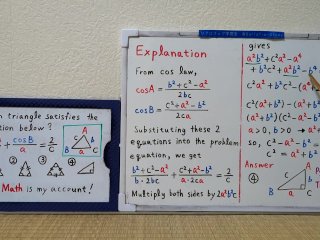 n triangle satisfies the
tion below ?
+ cosB/a = 2/C
A
b
c
C
a
B
② ③
Math is my account !
Explanation
From cos law,
cosA = b²+c²-a² / 2bc
cosB = c²+a²-b² / 2ca
Substituting these 2
equations into the problem
equation, we get
b²+c²-a² / b·2bc + c²+a²-b² / a·2ca = 2/C
Multiply both sides by 2a²b²c
gives
a²b²+c²a²-a⁴
+b²c²+a²b²-b⁴
c²a²+
c²(a²+b²)
c²(a²+b²)
a>0, b>0 →
so, c²-a²-b²
c²=a²+b²
Answer
④
A
b
C
a